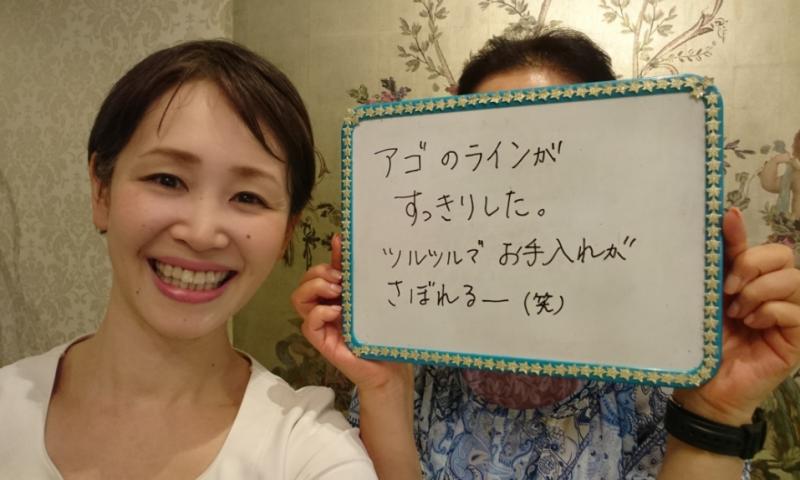 アゴのラインが
すっきりした。
ツルツルでお手入れが
さぼれるー(笑)